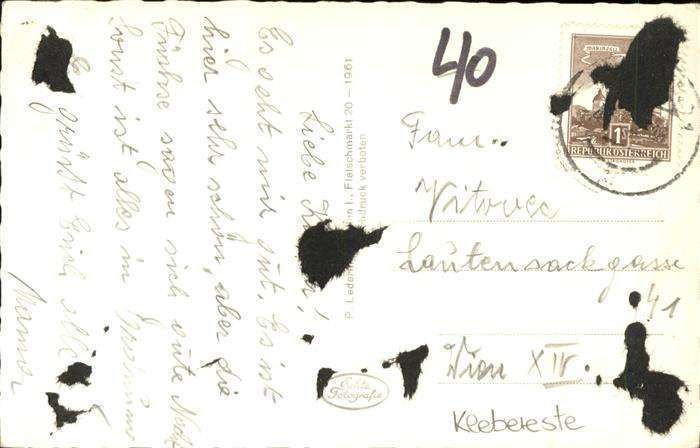 Liebe
Es geht mir gut. Es ist
hier sehr schön, aber die
Füsse sagen sich gute Nacht
Sonst ist alles in Ordnung
Es grüsst Euch alle
Mama
P. Ledermann, Wien I., Fleischmarkt 20 – 1961
Nachdruck verboten
Echte
Fotografie
40
MARIAZELL
1 S
REPUBLIK ÖSTERREICH
Fam.
Vitovec
Lautensackgasse
41
Wien XIV.
Klebereste